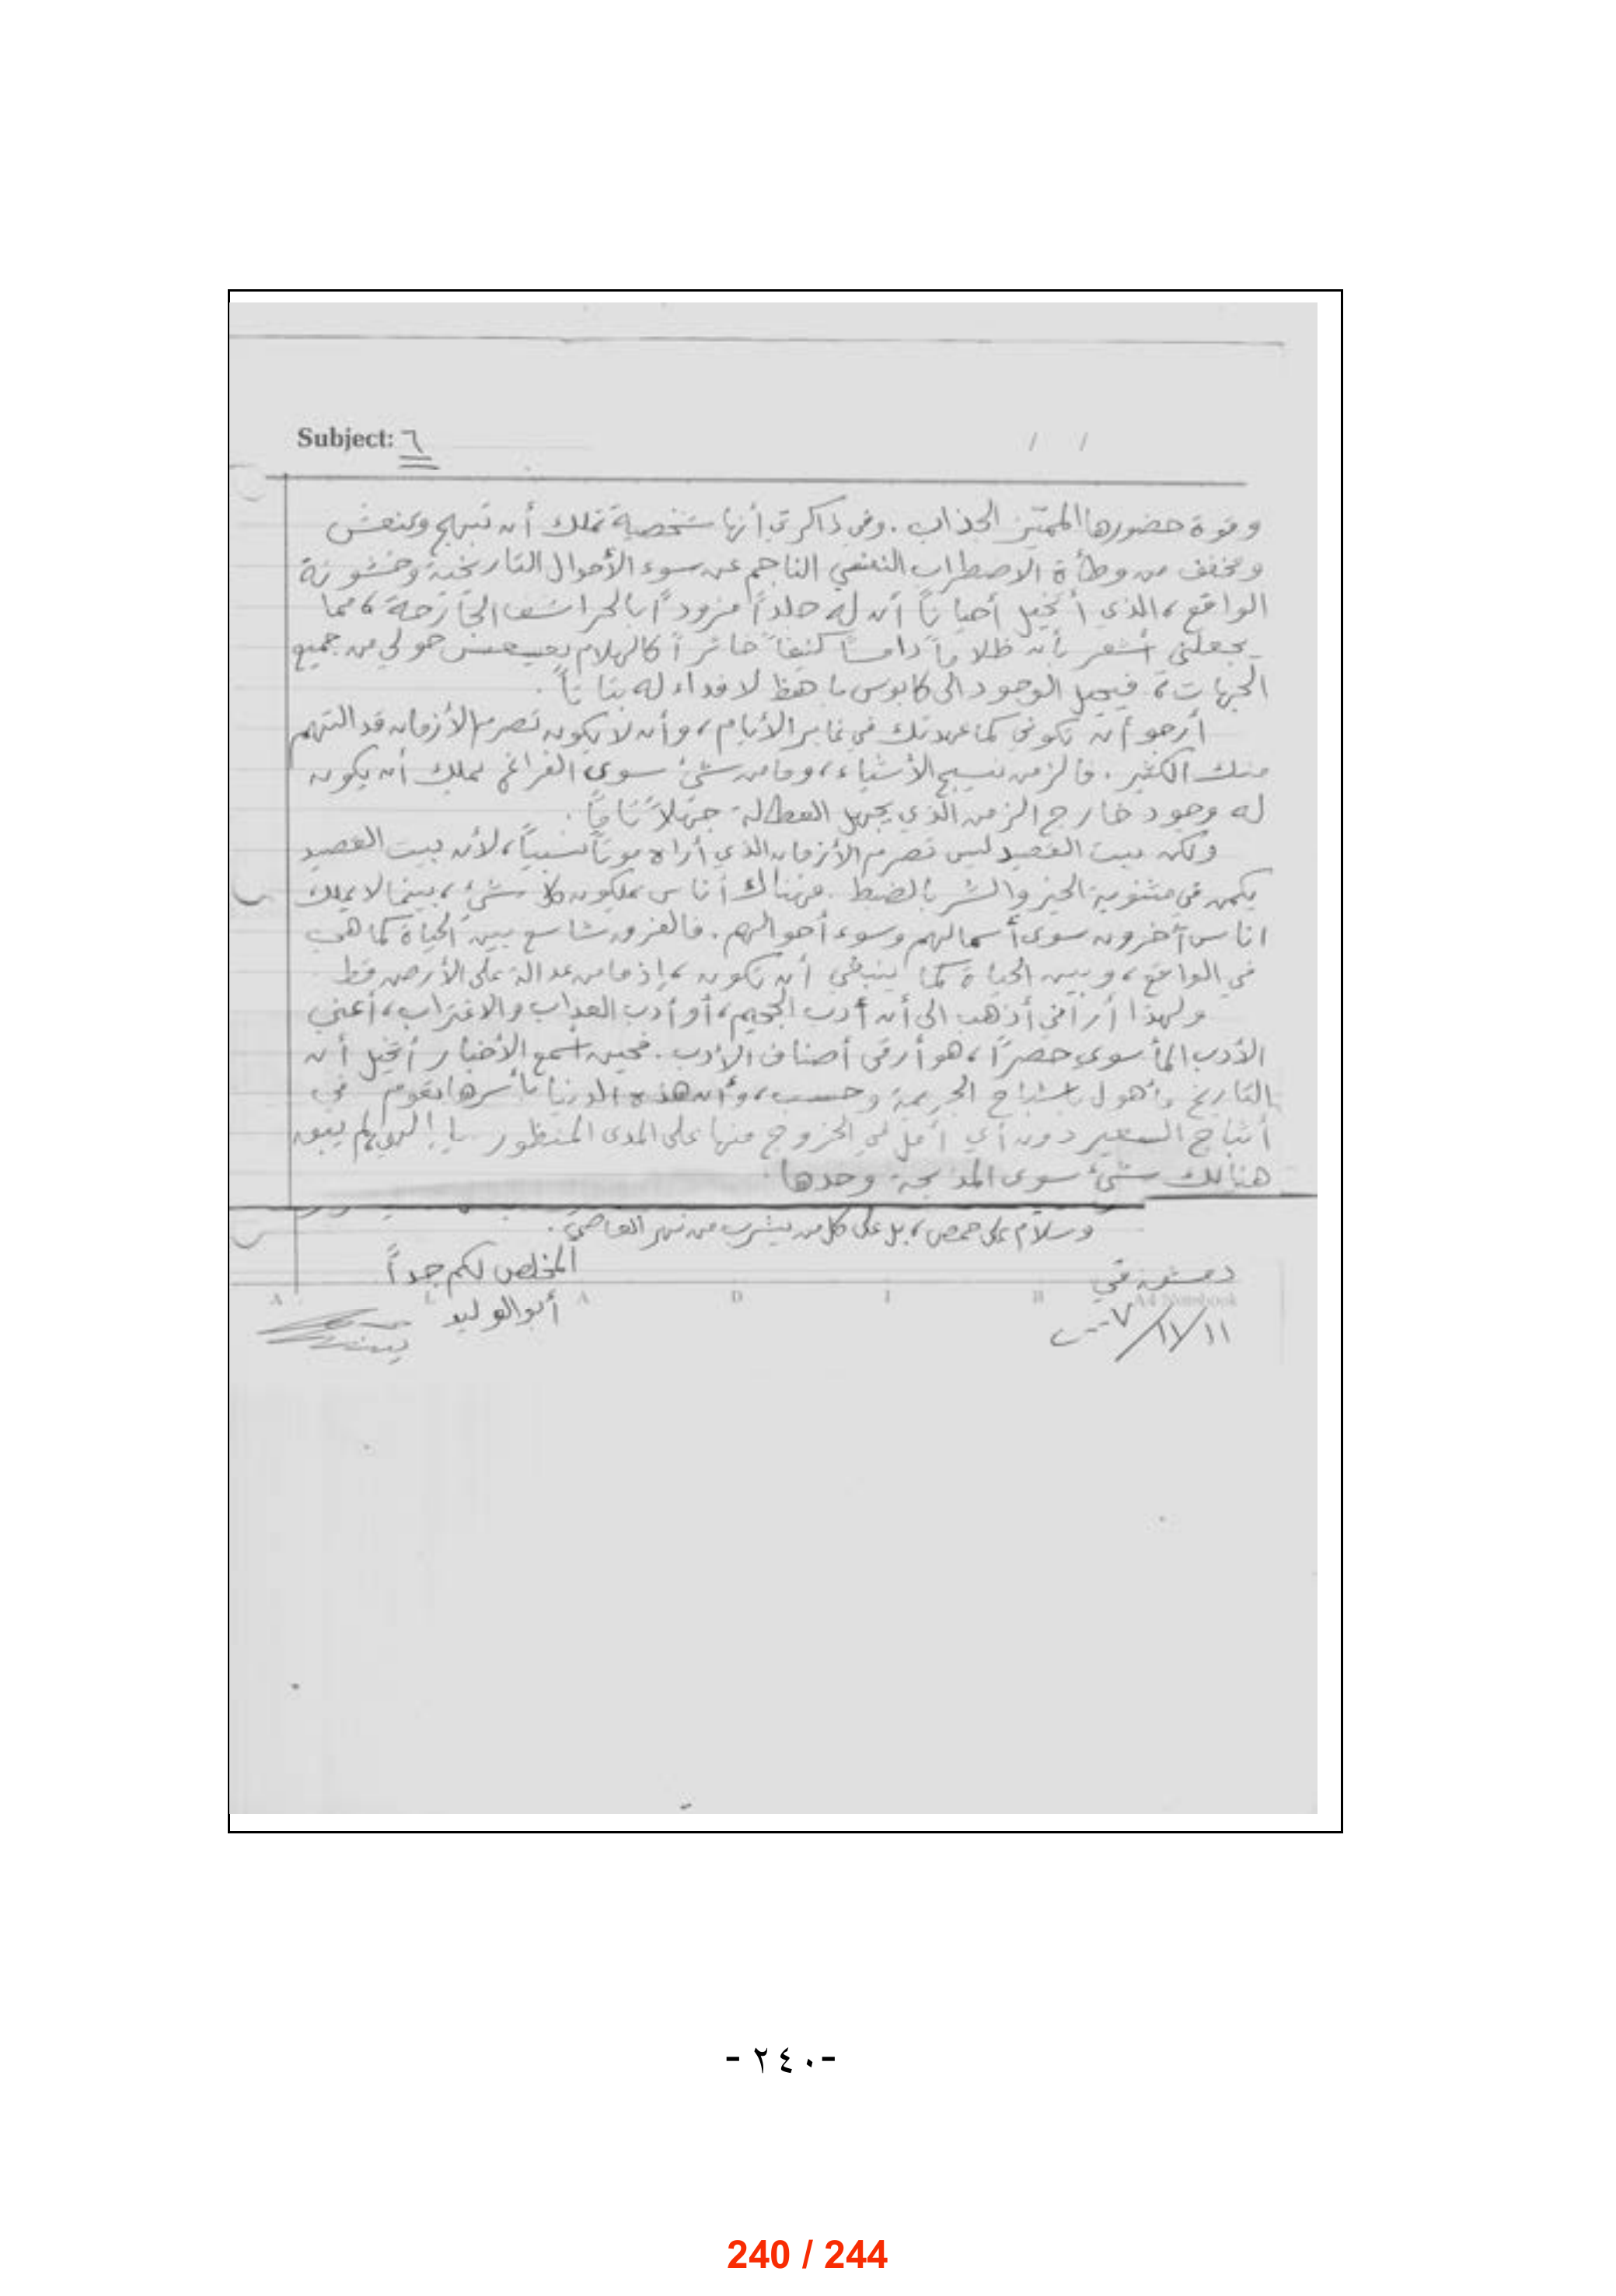 Subject: ٦
/ /
وقوة حضورها المميّز الجذاب. وفي ذاكرتي أنها شخصية تملك أن تبهج وتنعش
وتخفف من وطأة الاضطراب النفسي الناجم عن سوء الأحوال التاريخية وخشونة
الواقع، الذي أتخيل أحياناً أن له جلداً مزوداً بالحراشف الجارحة، مما
يجعلني أشعر بأن ظلاماً دامساً كثيفاً خاثراً كالهلام حولي من جميع
الجهات، فيحيل الوجود الى كابوس باهظ لا فداء له بتاتاً.
أرجو أن تكوني كما عهدتك في غابر الأيام، وأن لا يكون تصرم الأزمان قد التهم
منك الكثير. فالزمن نسيج الأشياء، وما من شيء سوى الفراغ يملك أن يكون
له وجود خارج الزمن الذي يجهل العطالة جهلاً تاماً.
ولكن بيت القصيد ليس تصرم الأزمان الذي أراه موتاً نسبياً، لأن بيت القصيد
يكمن في مثنوية الخير والشر بالضبط. فهناك أناس يملكون كل شيء، بينما لا يملك
اناس آخرون سوى أسمالهم وسوء أحوالهم. فالفرق شاسع بين الحياة كما هي
في الواقع، وبين الحياة كما ينبغي أن تكون، إذ ما من عدالة على الأرض قط
ولهذا أراني أذهب الى أن أدب الجحيم، أو أدب العذاب والاغتراب، أعني
الأدب المأسوي حصراً، هو أرقى أصناف الأدب. فحين أسمع الأخبار أتخيل أن
التاريخ مأهول بأشباح الجريمة وحسب، وأن هذه الدنيا بأسرها تقوم في
أثباج السعير دون أي أمل في الخروج منها على المدى المنظور. يا إلهي، لم يبق
هنالك شيء سوى المذبحة وحدها.
وسلام على حمص، بل على كل من يشرب من نهر العاصي.
المخلص لكم جداً
دمشق في
أبو الوليد
١١/١١/٢٠٠٧
A4 Notebook
- ٢٤٠-
240 / 244